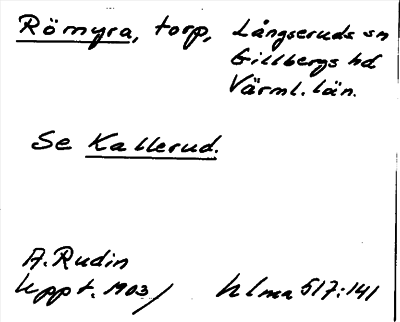 Römyra, torp, Långseruds sn
Gillbergs hd
Värml. län.
Se Kallerud.
A. Rudin
Uppt. 1903/ Ulma 517:141